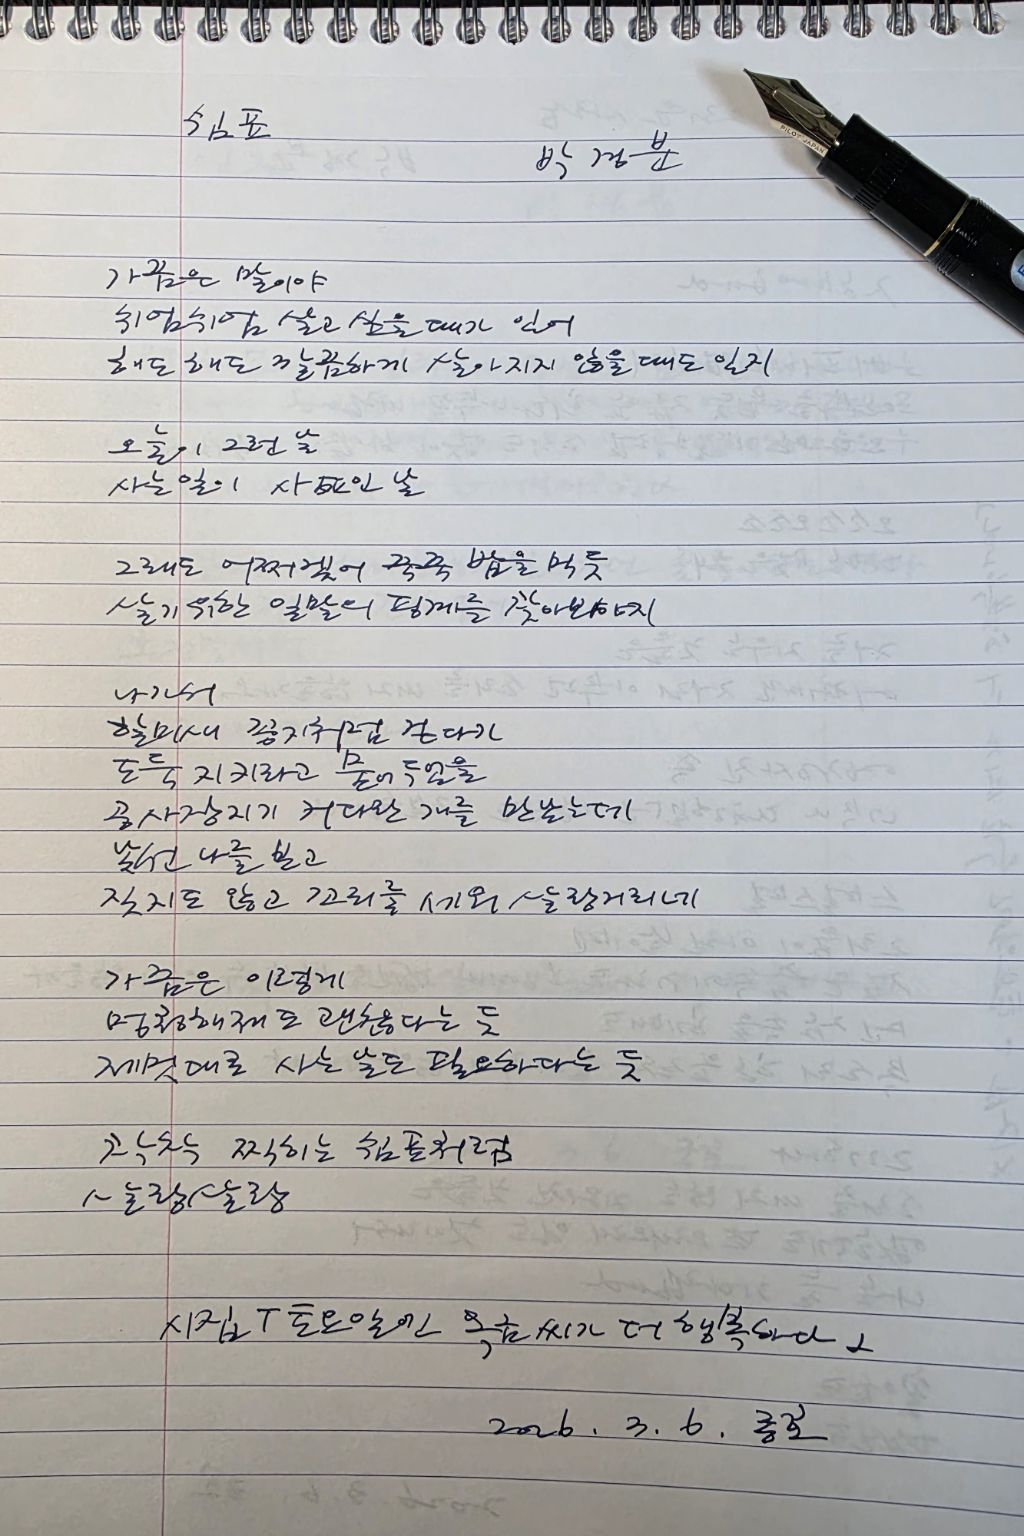 쉼표
박경분
PILOT JAPAN
가끔은 말이야
쉬엄쉬엄 살고 싶을 때가 있어
해도 해도 깔끔하게 살아지지 않을 때도 있지
오늘이 그런 날
사는 일이 사표인 날
그래도 어쩌겠어 꾹꾹 밥을 먹듯
살기 위한 일말의 핑계를 찾아봐야지
나가서
할미새 꽁지처럼 걷다가
도둑 지키라고 묶어두었을
공사장지기 커다란 개를 만났는데
낯선 나를 보고
짖지도 않고 꼬리를 세워 살랑거리네
가끔은 이렇게
멍청해져도 괜찮다는 듯
제멋대로 사는 날도 필요하다는 듯
콕콕 찍히는 쉼표처럼
살랑살랑
시집 「토요일에 목금씨가 더 행복하다」
2026. 3. 6. 종호